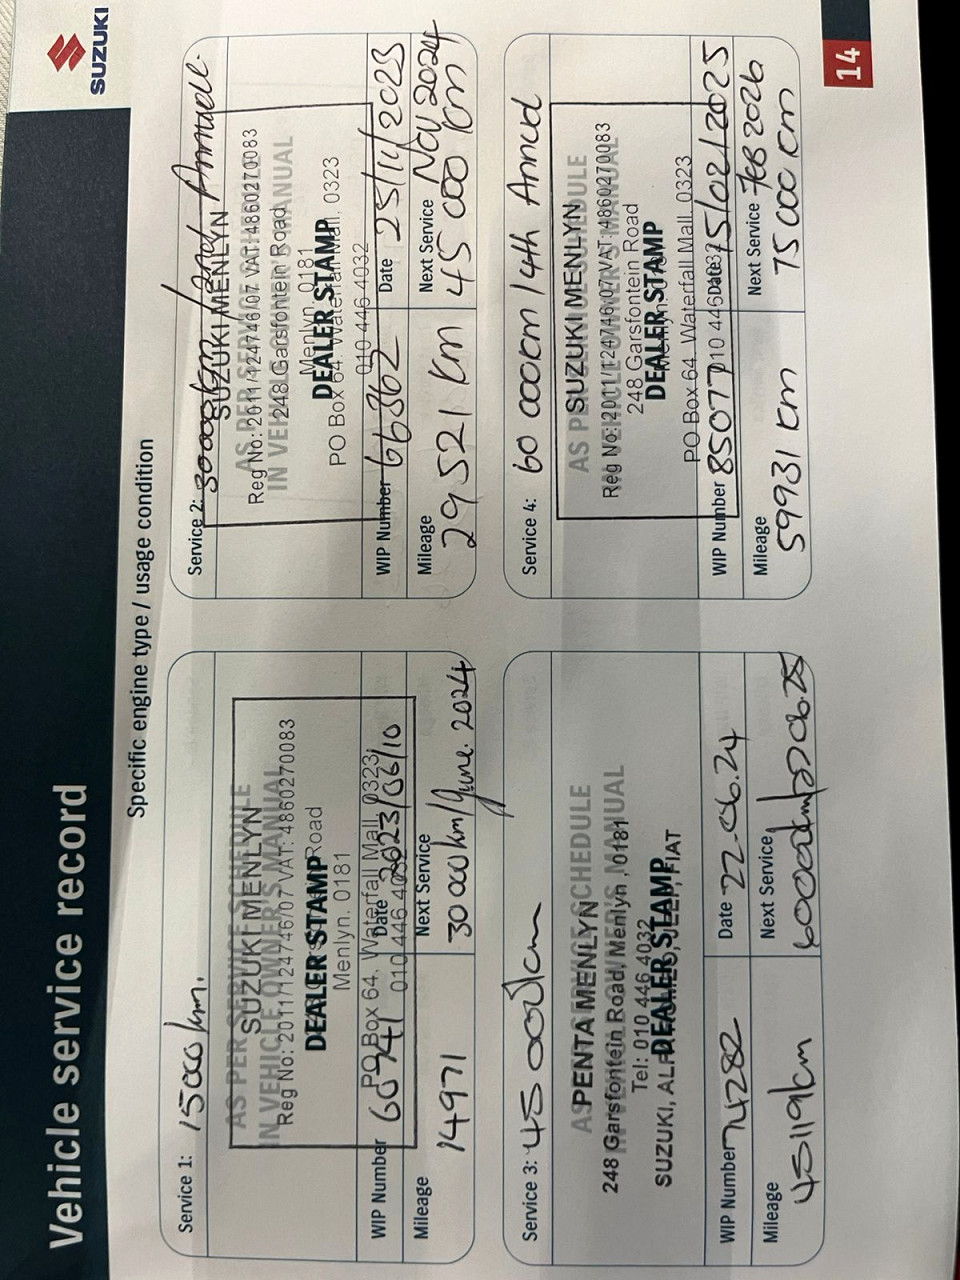 Vehicle service record
SUZUKI
Specific engine type / usage condition
Service 1: 15000km.
AS PER SERVICE SCHEDULE
SUZUKI MENLYN
IN VEHICLE OWNER'S MANUAL
Reg No: 2011/124746/07 VAT: 4860270083
Road
DEALER STAMP
Menlyn. 0181
PO Box 64. Waterfall Mall. 0323
010 446 4032
WIP Number 60741
Date 2023/06/10
Mileage
14971
Next Service
30000km/June. 2024
Service 2: 30000km/2nd Annuell.
SUZUKI MENLYN
AS PER SERVICE
Reg No: 2011/124746/07 VAT: 4860270083
IN VEHICLE OWNER'S MANUAL
248 Garsfontein Road
Menlyn. 0181
DEALER STAMP
PO Box 64. Waterfall Mall. 0323
010 446 4032
WIP Number 66362
Date 25/11/2023
Mileage
29521 km
Next Service Nov 2024
45 000 km
Service 3: 45 000km
AS PER SERVICE SCHEDULE
PENTA MENLYN
IN VEHICLE OWNER'S MANUAL
248 Garsfontein Road, Menlyn, 0181
Tel: 010 446 4032
DEALER STAMP
SUZUKI, ALFA ROMEO, JEEP, FIAT
WIP Number 74282
Date 22-06.24
Mileage
45119km
Next Service
60000km/22.06.25
Service 4: 60 000km /4th Annual
SUZUKI MENLYN
AS PER SERVICE SCHEDULE
Reg No: 2011/124746/07 VAT: 4860270083
IN VEHICLE OWNER'S MANUAL
248 Garsfontein Road
DEALER STAMP
PO Box 64. Waterfall Mall. 0323
010 446
WIP Number 85077
Date 15/02/2025
Mileage
59931 km
Next Service Feb 2026
75 000 km
14